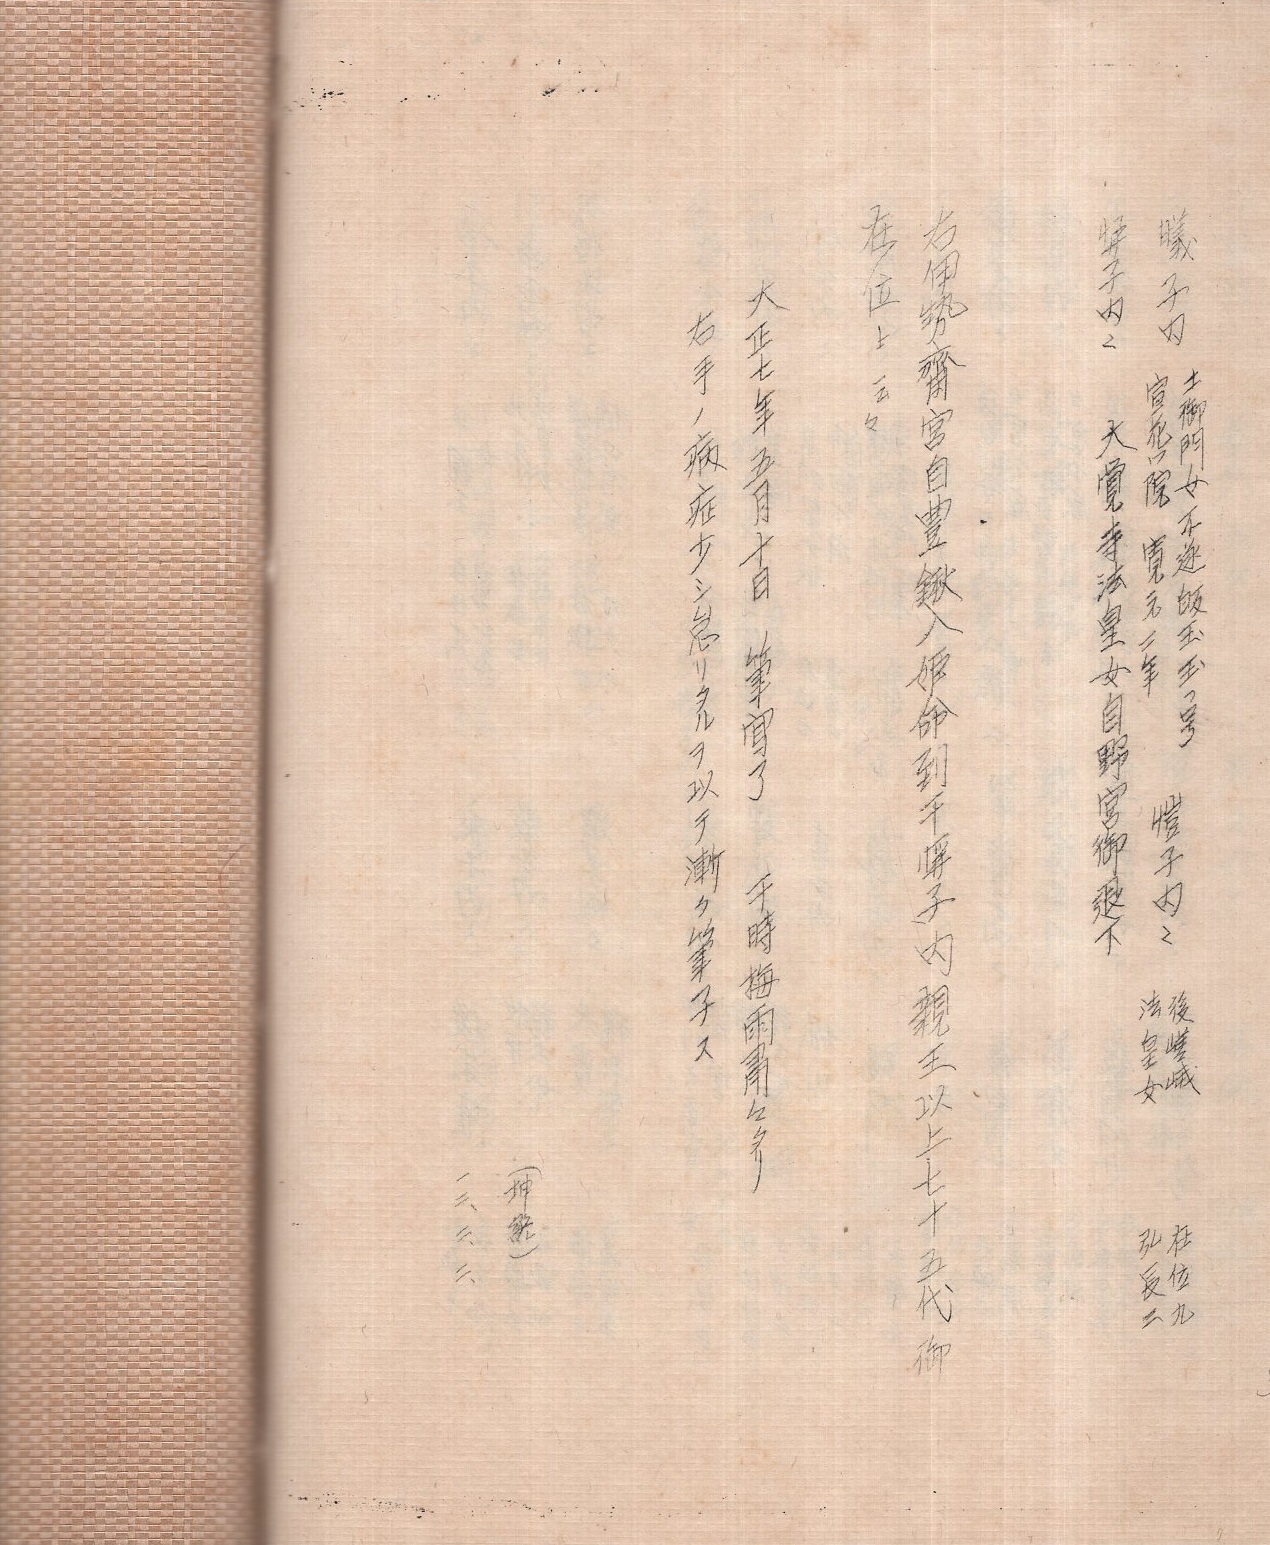 曦子内
土御門女 不逐皈玉玉フ号
宣花門院 寛元二年
愷子内〻
後嵯峨
法皇女
在位九
弘長二
㢡子内〻 大覚寺法皇女自野宮御退下
右伊勢齋宮自豊鍬入姫命到于㢡子内親王以上七十五代御
在位上 云々
大正七年五月十日 筆寫了 于時梅雨肅々タリ
右手ノ病症少シ怠リタルヲ以テ漸ク筆子ス
一二、二、二、